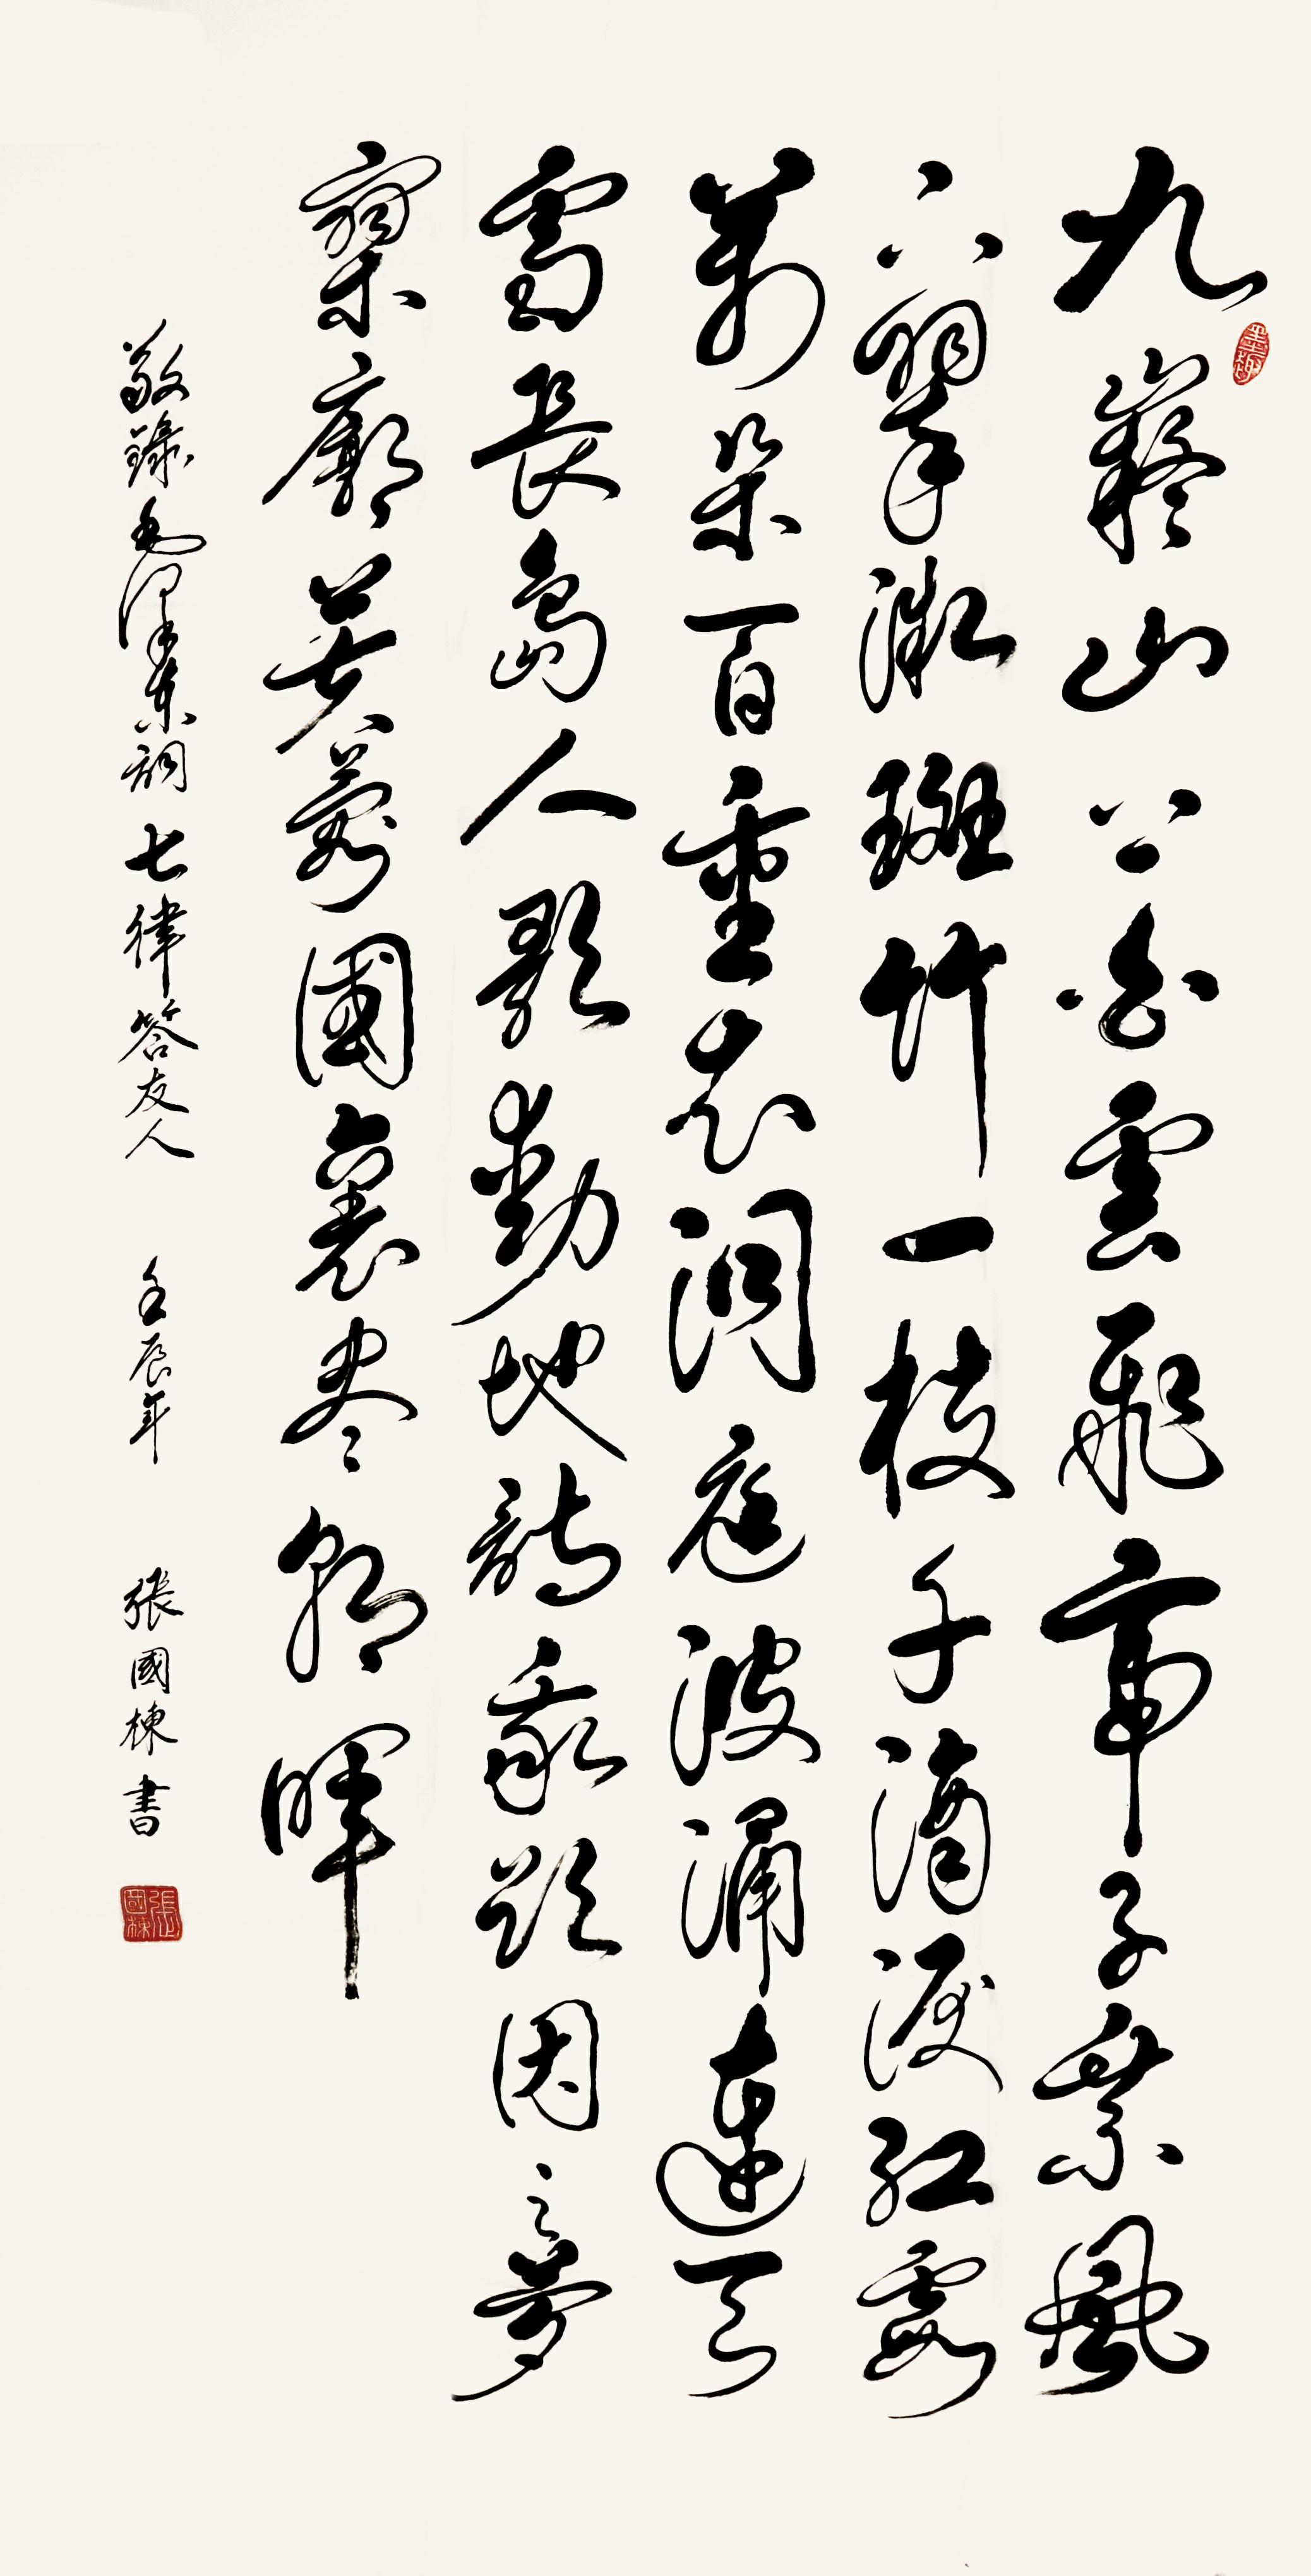 九嶷山上白雲飛帝子乘風
下翠微斑竹一枝千滴淚紅霞
萬朵百重衣洞庭波涌連天
雪長島人歌動地詩我欲因之夢
寥廓芙蓉國裏尽朝暉
敬錄毛澤東詞 七律答友人 壬辰年 張國棟書
墨趣
張國棟